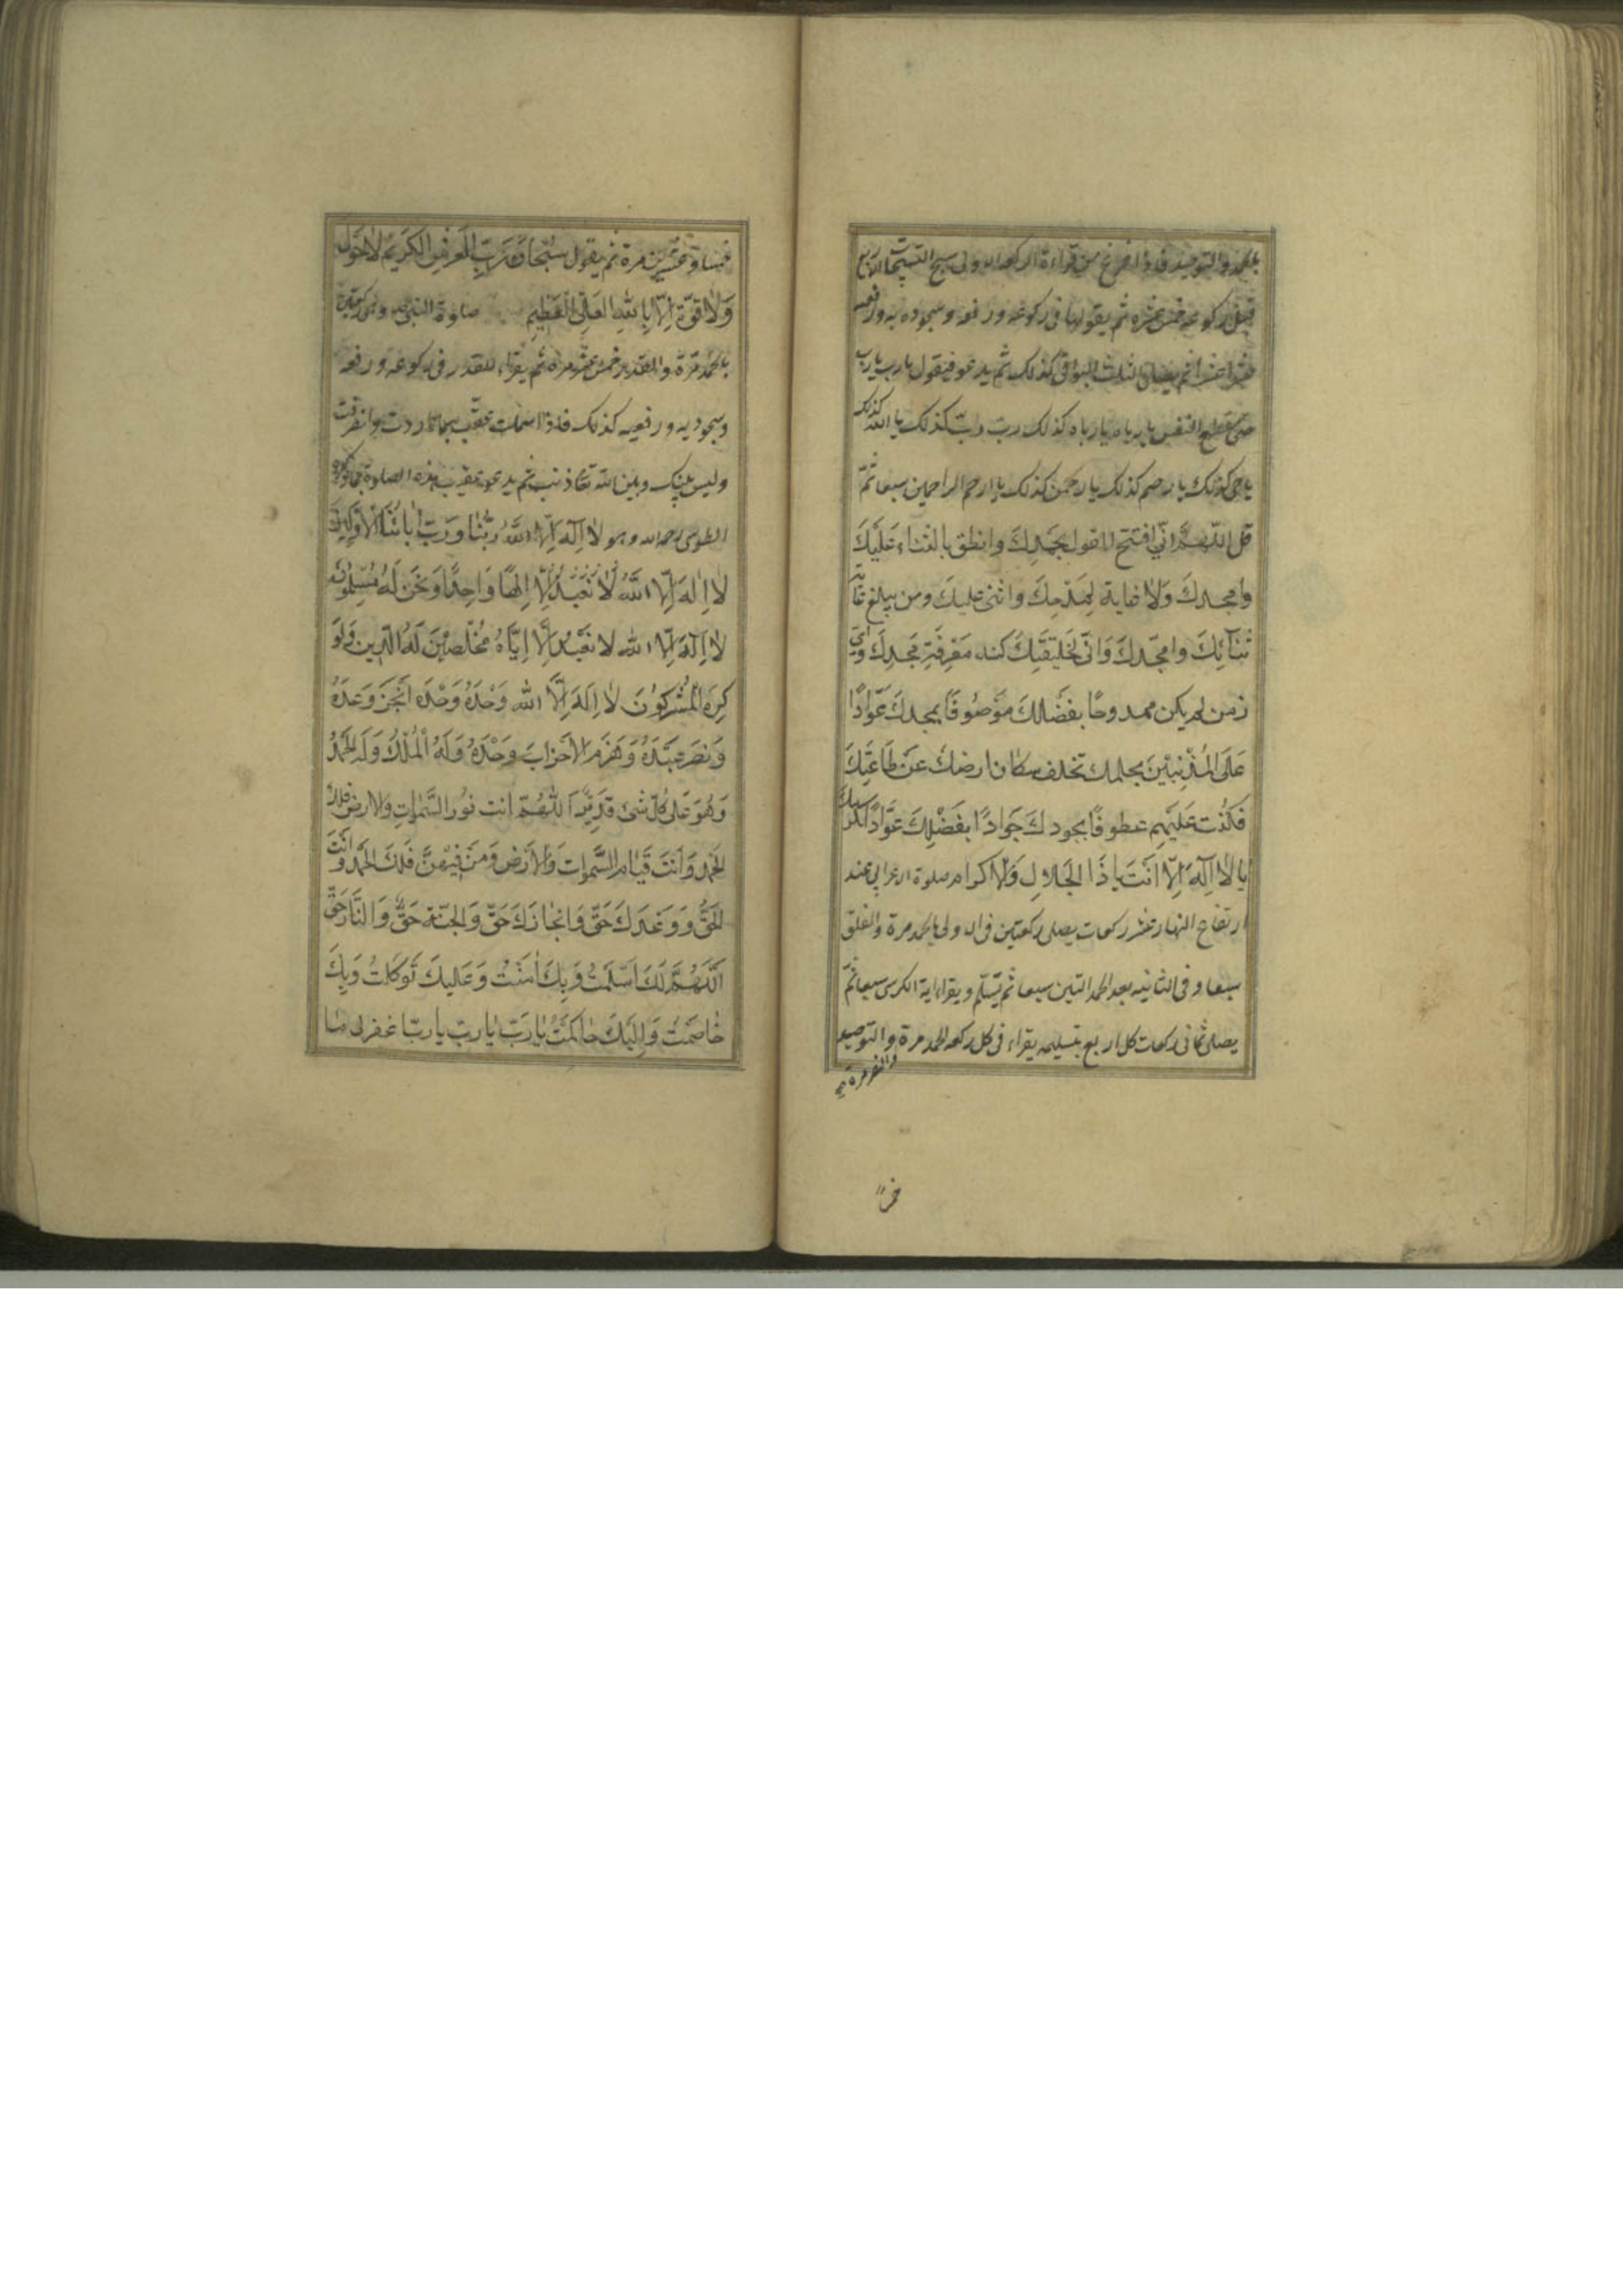 بالحمد والتوحيد فاذا فرغ من قراءة الركعة الاولى سبح التسبيحات الاربع
قبل ركوعه خمس عشره ثم يقولها فى ركوعه ورفعه وسجوديه ورفعيه
عشرا عشرا ثم يصلى الثلث البواقى كذلك ثم يدعو فيقول يا رب يا رب
حتى ينقطع النفس يا رباه يا رباه كذلك رب رب كذلك يا الله كذلك
يا حى كذلك يا رحيم كذلك يا رحمن كذلك يا ارحم الراحمين سبعا ثمّ
قل اللّهمّ انّي افتتح القول بحمدِكَ وانطق بالثناء عَلَيكَ
وامجدكَ وَلا غاية لِمَدْحِكَ واثنى عليكَ ومن يبلغ غاية
ثَنآئِكَ وامجّدكَ وَانّى لخَليقَتِكَ كنه مَعْرِفَةِ مَجدِكَ وَايّ
زمن لم يكن ممدوحًا بفَضْلكَ مَوْصُوفًا بمجدكَ عَوّادًا
عَلَى المُذْنِبينَ بحلمك تخلف سكان ارضكَ عَن طَاعَتِكَ
فَكُنْت عَلَيْهِم عطوفًا بجودكَ جَوَادًا بفَضْلِكَ عَوّادًا بكرمك
يا لا اِلَهَ اِلاّ انْتَ يا ذَا الجَلالِ وَالاكرام صلوة الاعرابي عند
ارتفاع النهار عشر ركعات يصلى ركعتين فى الاولى بالحمد مرة والفلق
سبعا وفى الثانيه بعد الحمد الناس سبعا ثم يسَلّم ويقراء اية الكرسى سبعا ثمّ
يصلى ثمانى ركعات كل اربع بتسليمه يقراء فى كل ركعه الحمد مرة والتوحيد
خمسا وعشرين مرة ثم يقول سُبْحَانَ رَبِّ العَرْشِ الكَرِيْمِ لا حَوْلَ
وَلا قوّة اِلاّ بِاللهِ العَلِىِّ الْعَظِيْمِ صلوة النبى وهى ركعتين
بالحمد مَرّة والقدر خمس عشر مرة ثم يقراء القدر فى ركوعه ورفعه
وسجوديه ورفعيه كذلك فاذا سلمت عقب بما اردت وانصرفت
وليس بينك وبين الله تعا ذنب ثم يدعو عقيب هذه الصلوة بما ذكره
الطوسى رحمه الله وهو لا اِلَهَ اِلاّ اللهُ رَبُّنَا وَرَبّ اَبائِنَا الاَوَّلِينَ
لا اِلَهَ اِلاّ اللهُ لا نَعْبُدُ اِلاّ اِلهًا وَاحِدًا وَنَحْن لَهُ مُسْلِمُونَ
لا اِلَهَ اِلاّ الله لا نَعْبُدُ اِلاّ اِيّاهُ مُخْلِصِيْنَ لَهُ الدّينَ وَلَو
كَرِهَ المُشْرِكُونَ لا اِلَهَ اِلاَّ الله وَحْدَهُ وَحْدَه اَنْجَزَ وَعْدَهُ
وَنَصَرَ عَبْدَهُ وَهَزَمَ الاَحْزابَ وَحْدَهُ وَلَهُ الْمُلْكُ وَلَه الحَمْدُ
وَهُوَ عَلى كُلّ شَىء قَدِيرٌ اَللّهُمّ انت نُور السَّمٰواتِ وَالارضِ فلك
الحَمد وَاَنتَ قَيَّام السَّمواتِ وَالاَرْضِ وَمَنْ فِيْهِنَّ فَلَكَ الحَمْد وَاَنْتَ
الحَقُّ وَوَعْدكَ حَقّ وَانجَازكَ حَقّ وَالجنّة حَقّ وَالنَّار حَقّ
اَللّهُمَّ لَكَ اَسْلَمْتُ وَبِكَ اٰمَنْتُ وَعَلَيكَ تَوكّلتُ وَبِكَ
خٰاصَمْت وَاِلَيْكَ حٰاكَمْتُ يٰا رَبّ يٰا ربّ يا ربّ اغفر لى مٰا